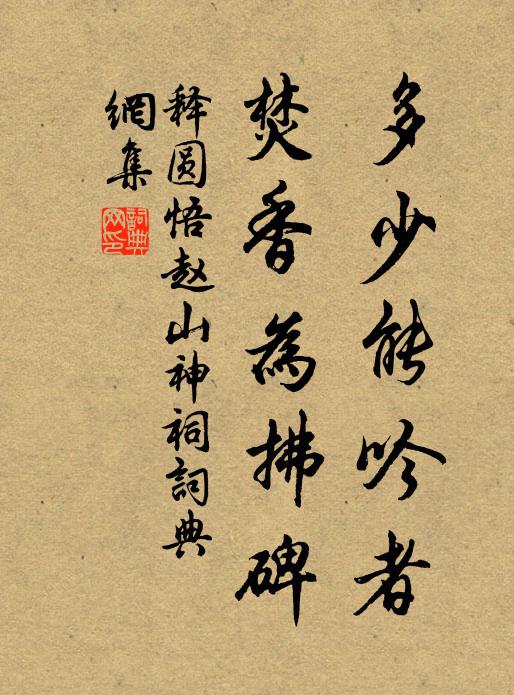 多少能吟者
焚香為拂碑
释圆悟赵山神祠詞典
網集
詞典网印